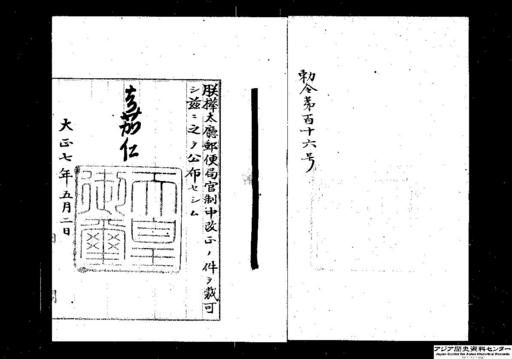 勅令第百十六号
朕樺太廳郵便局官制中改正ノ件ヲ裁可
シ茲ニ之ヲ公布セシム
嘉仁
天皇
御璽
大正七年五月二日
アジア歴史資料センター
Japan Center for Asian Historical Records